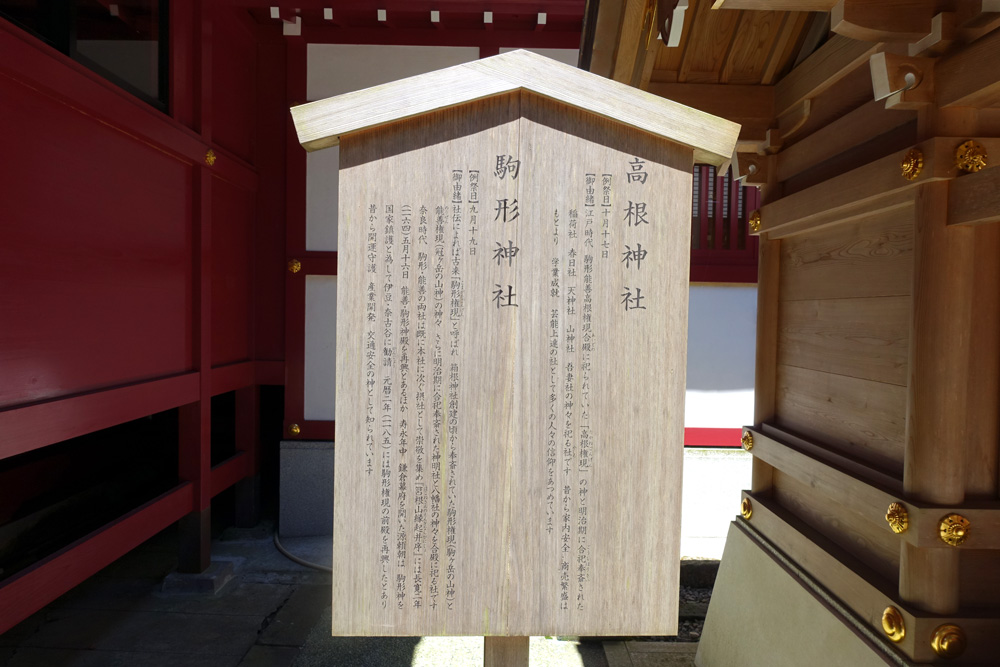 高根神社
【例祭日】十月十七日
【御由緒】江戸時代 駒形能善高根権現合殿に祀られていた「高根権現」の神と明治期に合祀奉斎された
稲荷社 春日社 天神社 山神社 吾妻社の神々を祀る社です 昔から家内安全 商売繁盛は
もとより 学業成就 芸能上達の社として多くの人々の信仰をあつめています
駒形神社
【例祭日】九月十九日
【御由緒】社伝によれば古来「駒形権現」と呼ばれ 箱根神社創建の頃から奉斎されていた駒形権現(駒ヶ岳の山神)と
能善権現(冠ヶ岳の山神)の神々 さらに明治期に合祀奉斎された神明社と八幡社の神々を合殿に祀る社です
奈良時代 駒形・能善の両社は既に本社に次ぐ摂社として崇敬を集め「筥根山縁起并序」には長寛二年
(一一六四)五月十六日 能善・駒形神殿を再興とあるほか 寿永年中 鎌倉幕府を開いた源頼朝は 駒形神を
国家鎮護と為して伊豆・奈古谷に勧請 元暦二年(一一八五)には駒形権現の前殿を再興したとあり
昔から開運守護 産業開発 交通安全の神として知られています